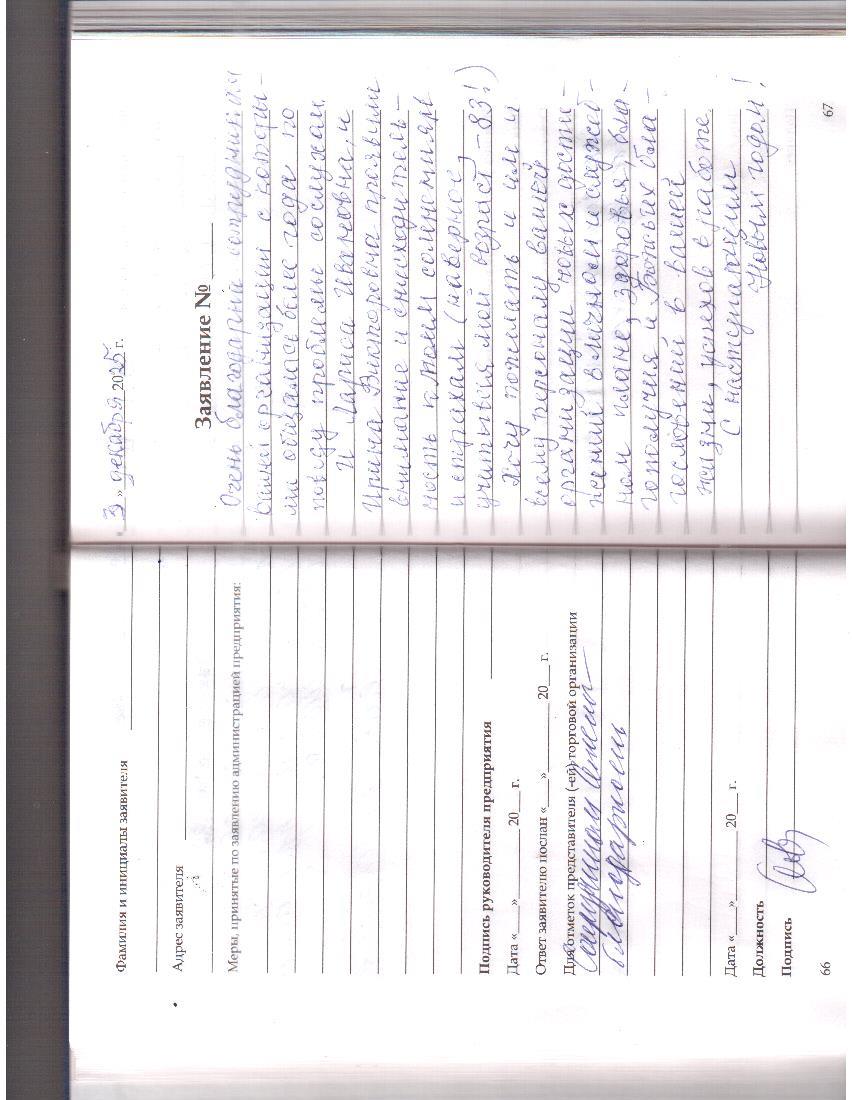 Фамилия и инициалы заявителя
Адрес заявителя
Меры, принятые по заявлению администрацией предприятия:
Подпись руководителя предприятия
Дата «___»________ 20___ г.
Ответ заявителю послан «___»________ 20___ г.
Для отметок представителя (-ей) торговой организации
Сотрудникам
благодарность
Дата «___»________ 20___ г.
Должность
Подпись
66
«3» декабря 2025 г.
Заявление № ____
Очень благодарна сотрудникам
вашей организации с которы-
ми общалась более года по
поводу проблемы со слухам.
И Лариса Ивановна, и
Ирина Викторовна проявили
внимание и снисходитель-
ность к моим сомнениям
и страхам (наверное,
учитывая мой возраст - 83!)
Хочу пожелать и им и
всему персоналу вашей
организации новых дости-
жений в личном и служеб-
ном плане, здоровья, бла-
гополучия и Божьих бла-
гословений в вашей
жизни, успехов в работе.
С наступающим
Новым годом!
67